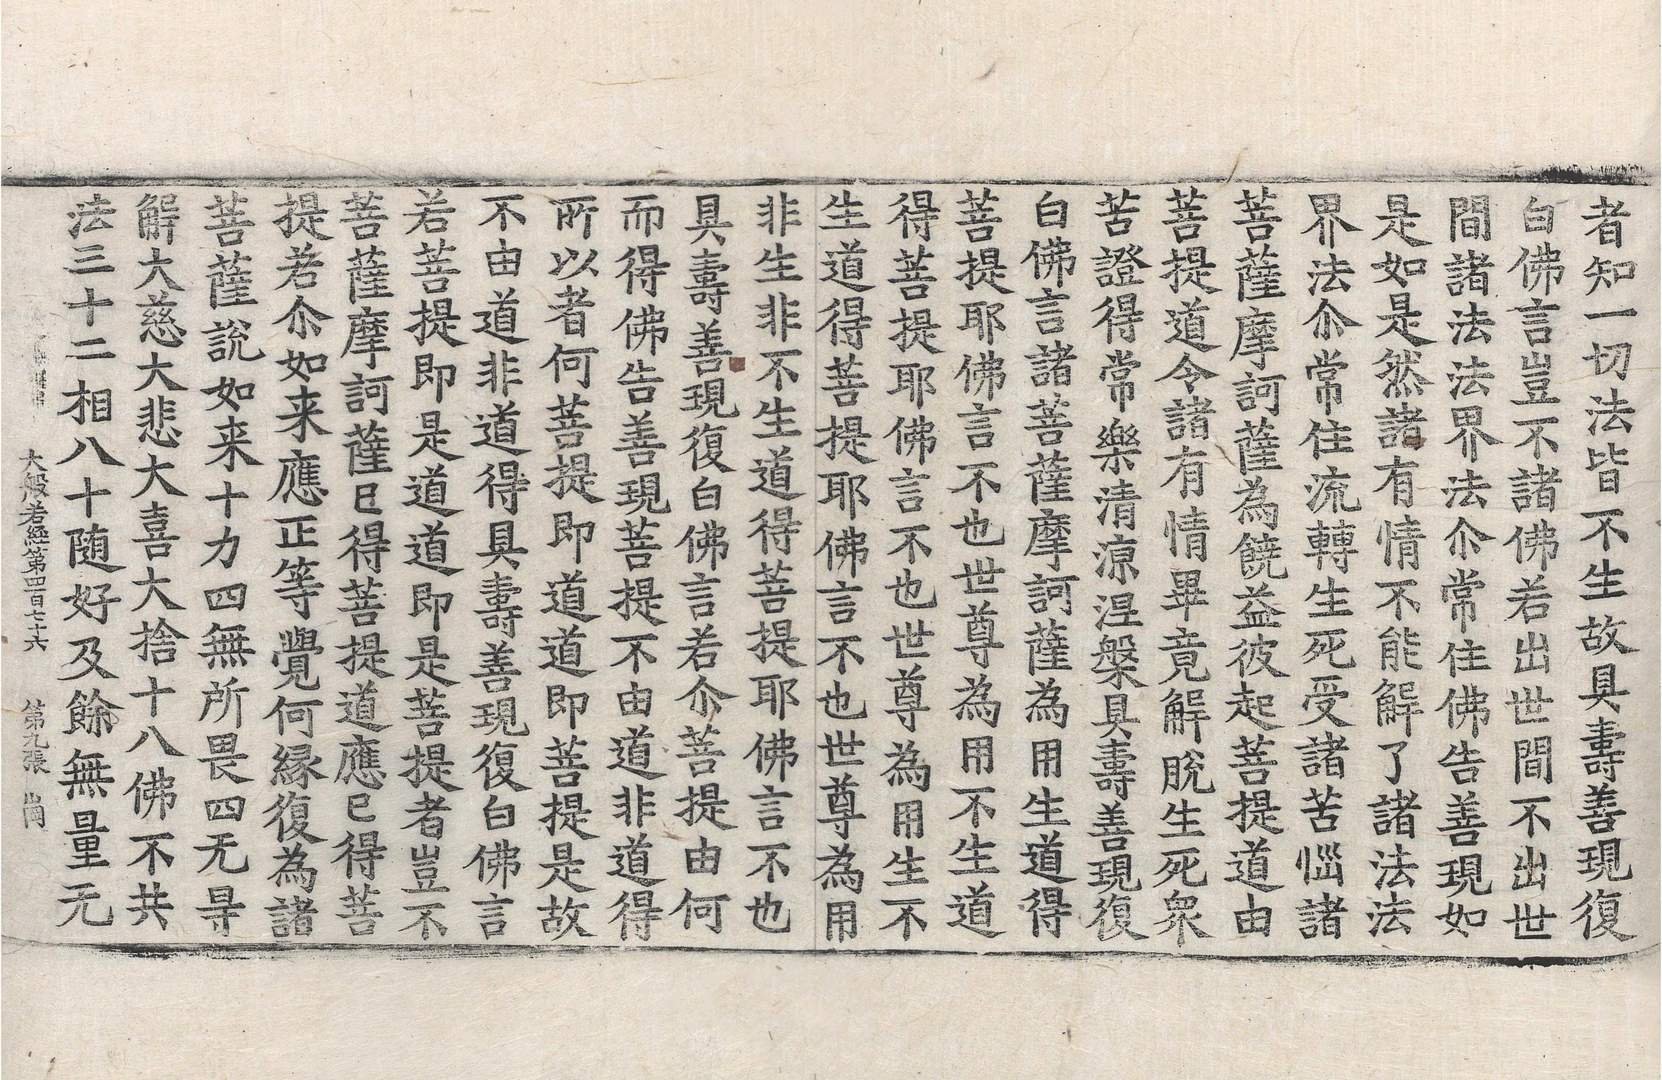 者知一切法皆不生故具壽善現復
白佛言豈不諸佛若出世間不出世
間諸法法界法尒常住佛告善現如
是如是然諸有情不能解了諸法法
界法尒常住流轉生死受諸苦惱諸
菩薩摩訶薩為饒益彼起菩提道由
菩提道令諸有情畢竟解脫生死衆
苦證得常樂清涼涅槃具壽善現復
白佛言諸菩薩摩訶薩為用生道得
菩提耶佛言不也世尊為用不生道
得菩提耶佛言不也世尊為用生不
生道得菩提耶佛言不也世尊為用
非生非不生道得菩提耶佛言不也
具壽善現復白佛言若尒菩提由何
而得佛告善現菩提不由道非道得
所以者何菩提即道道即菩提是故
不由道非道得具壽善現復白佛言
若菩提即是道道即是菩提者豈不
菩薩摩訶薩已得菩提道應已得菩
提若尒如来應正等覺何緣復為諸
菩薩說如来十力四無所畏四无㝵
解大慈大悲大喜大捨十八佛不共
法三十二相八十随好及餘無量无
大般若經第四百七十六 第九張 崗